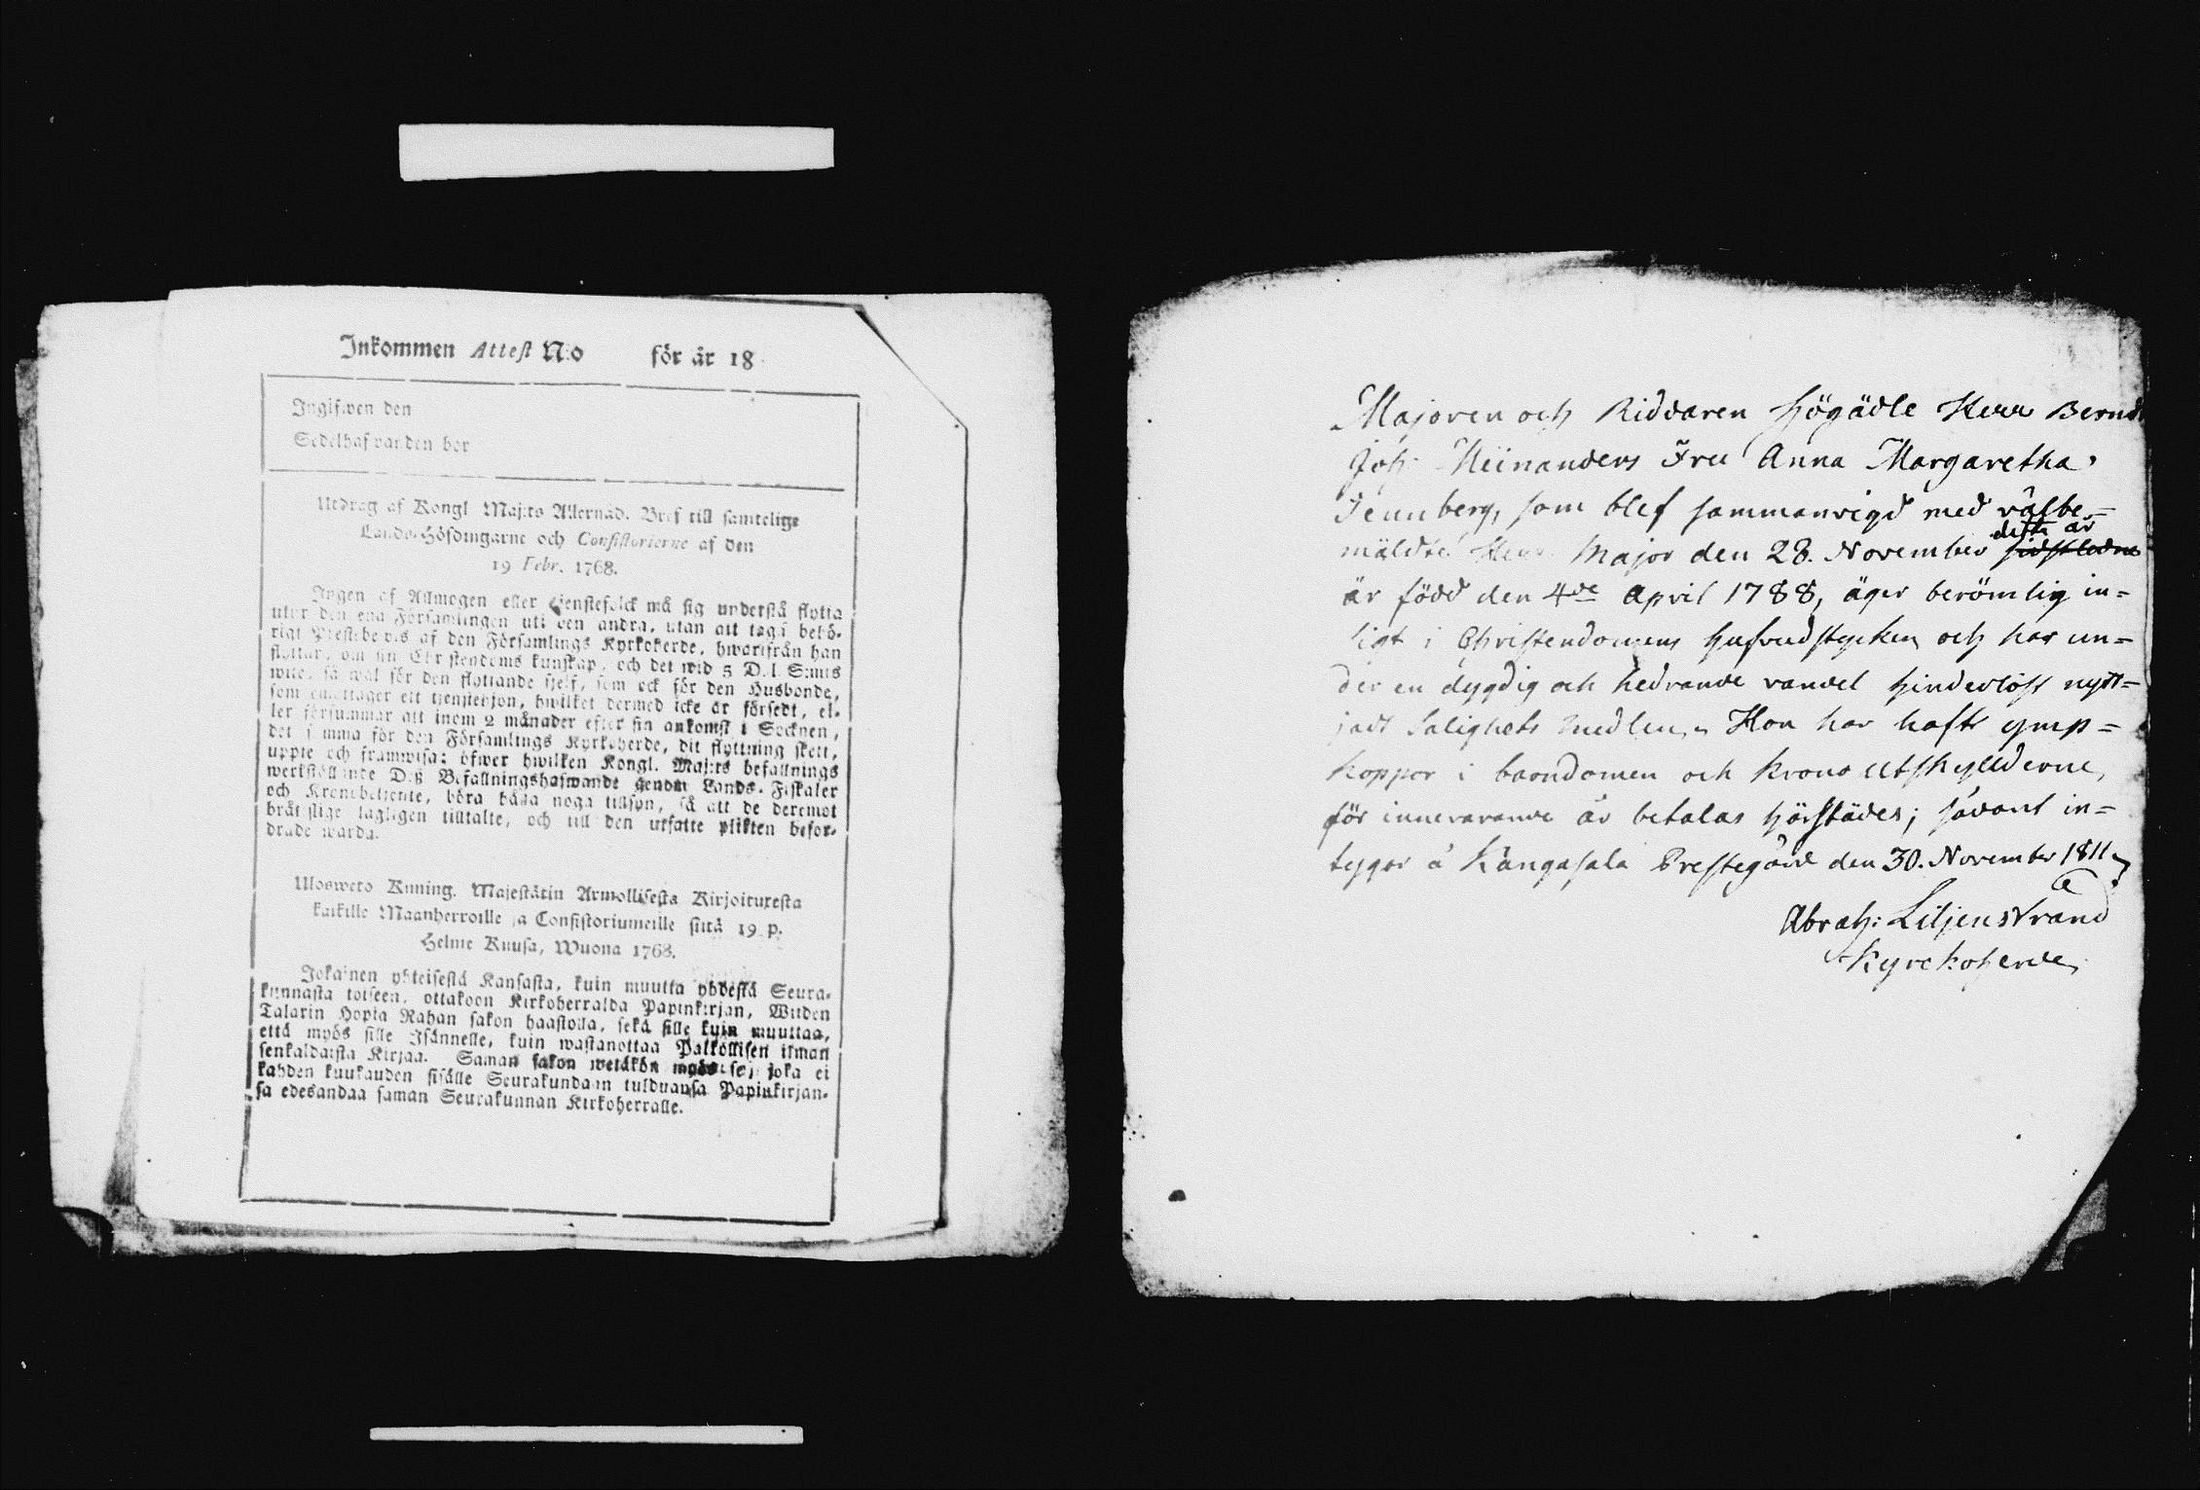 Inkommen Attest N:o för år 18
Ingifwen den
Sedelhafwanden bor
Utdrag af Kongl Maj:ts Allernåd. Bref till samtelige
Lands-Höfdingarne och Consistorierne af den
19 Febr. 1768.
Ingen af Allmogen eller tjenstefolck må sig understå flytta
utur den ena Församlingen uti den andra, utan att taga behö-
rigt Prestebevis af den Församlings Kyrkoherde, hwarifrån han
flyttar, om sin Christendoms kunskap, och det wid 5 D. l. S:mts
wite, så wäl för den flyttande sjelf, som ock för den Husbonde,
som emottager ett tjenstehjon, hwilket dermed icke är försedt, el-
ler försummar att inom 2 månader efter sin ankomst i Socknen,
det samma för den Församlings Kyrkoherde, dit flyttning skett,
uppte och framwisa: öfwer hwilken Kongl. Maj:ts befallnings
werkställande Deß Befallningshafwande genom Lands-Fiskaler
och Kronobetjente, böra hålla noga tillsyn, så att de deremot
bråtslige lagligen tilltalte, och till den utsatte plikten befor-
drade warda.
Uloswето Kuning. Majestätin Armollisesta Kirjoituxesta
kaikille Maanherroille ja Consistoriumeille siitä 19 p.
Helme Kuusa, Wuona 1768.
Jokainen yhteisestä Kansasta, kuin muutta yhdestä Seura-
kunnasta toiseen, ottakoon Kirkoherralda Papinkirjan, Wiiden
Talarin Hopia Rahan sakon haastolla, sekä sille kuin muuttaa,
että myös sille Isännelle, kuin wastanottaa Palkollisen ilman
senkaldaista Kirjaa. Saman sakon wetäkön myös se, joka ei
kahden kuukauden sisälle Seurakundaan tulduansa Papinkirjan-
sa edesandaa saman Seurakunnan Kirkoherralle.
Majoren och Riddaren Högädle Herr Bernd
Joh: Meinanders Fru Anna Margaretha
Tennberg, som blef sammanvigd med välbe-
mäldte Herr Major den 28. November detta år sidstledne
är född den 4de April 1788, äger berömlig in-
sigt i Christendomens hufvudstycken och har un-
der en dygdig och hedrande vandel hinderlöst nytt-
jadt Salighets medlen. Hon har haft ymp-
koppor i barndomen och Krono utskylderne,
för innevarande år betalas härstädes; sådant in-
tygar å Kangasala Prestegård den 30. November 1811
Abrah: Liljenstrand
Kyrkoherde